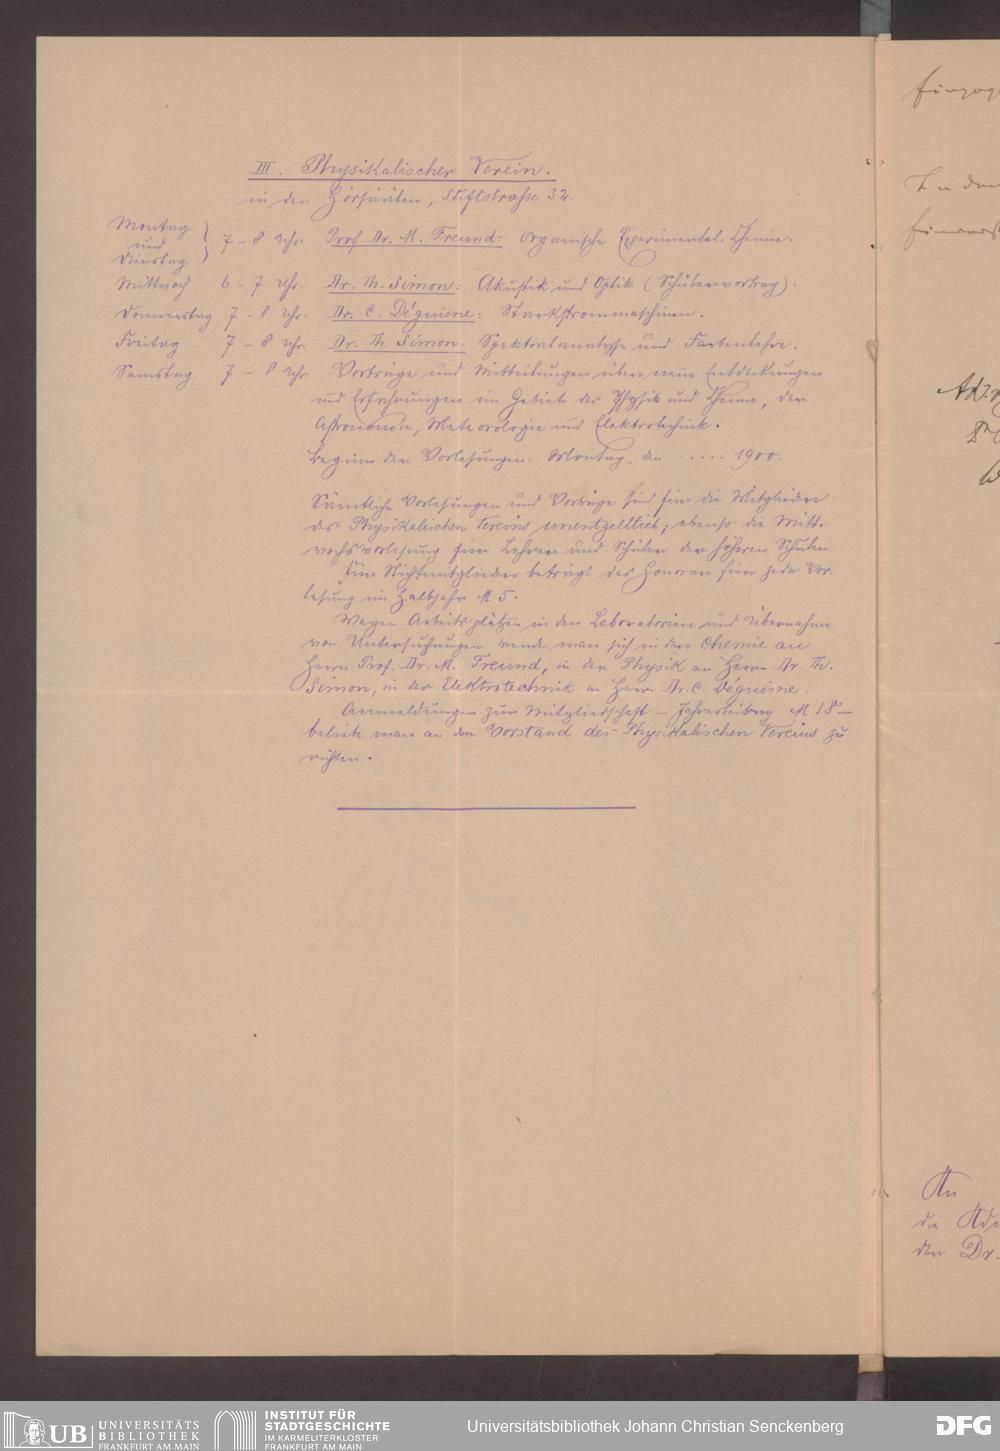 III. Physikalischer Verein.
in den Hörsäälen, Stiftstrasse 32.
Montag
und
Dienstag
7 - 8 Uhr: Prof. Dr. M. Freund: Organische Experimental. Chemie.
Mittwoch 6 - 7 Uhr. Dr. Th. Simon: Akustik und Optik (Schülervortrag).
Donnerstag 7 - 8 Uhr. Dr. C. Déguisne: Starkstrommaschinen.
Freitag 7 - 8 Uhr. Dr. Th. Simon: Spektralanalyse und Farbenlehre.
Samstag 7 - 8 Uhr. Vorträge und Mitteilungen über neue Entdeckungen
und Erfahrungen im Gebiete der Physik und Chemie, der
Astronomie, Meteorologie und Elektrotechnik.
Beginn der Vorlesungen: Montag, den ..... 1900.
Sämtliche Vorlesungen und Vorträge sind für die Mitglieder
des Physikalischen Vereins unentgeltlich; ebenso die Mitt-
wochsvorlesung für Lehrer und Schüler der höheren Schulen.
Für Nichtmitglieder beträgt das Honorar für jede Vor-
lesung im Halbjahr M 5.
Wegen Arbeitsplätzen in den Laboratorien und Übernahme
von Untersuchungen wende man sich in der Chemie an
Herrn Prof. Dr. M. Freund, in der Physik an Herrn Dr. Th.
Simon, in der Elektrotechnik an Herrn Dr. C. Déguisne.
Anmeldungen zur Mitgliedschaft - Jahresbeitrag M 18 -
beliebe man an den Vorstand des Physikalischen Vereins zu
richten.
An
die
der Dr.
UB UNIVERSITÄTS
BIBLIOTHEK
FRANKFURT AM MAIN
INSTITUT FÜR
STADTGESCHICHTE
IM KARMELITERKLOSTER
FRANKFURT AM MAIN
Universitätsbibliothek Johann Christian Senckenberg
DFG